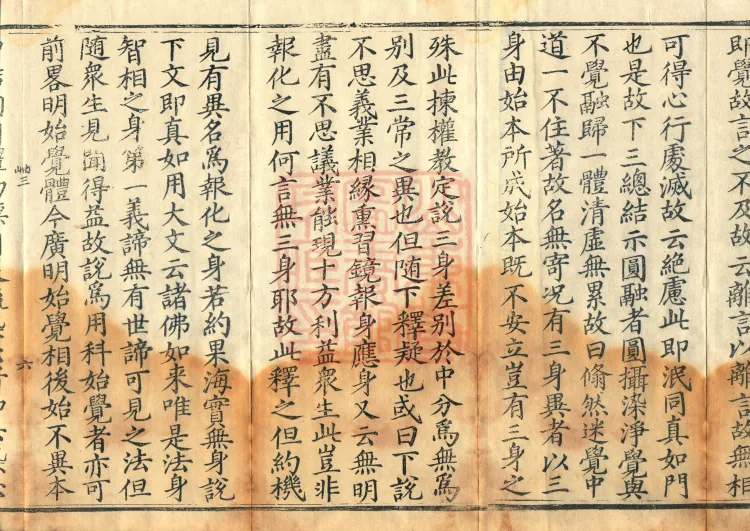 即覺故言之不及故云離言以離言故無相
可得心行處滅故云絶慮此即泯同真如門
也是故下三總結示圓融者圓攝染淨覺與
不覺融歸一體清虛無累故曰翛然迷覺中
道一不住著故名無寄况有三身異者以三
身由始本所成始本既不安立豈有三身之
殊此揀權教定說三身差別於中分爲無爲
別及三常之異也但随下釋疑也或曰下說
不思義業相緣熏習鏡報身應身又云無明
盡有不思議業能現十方利益衆生此豈非
報化之用何言無三身耶故此釋之但約機
見有異名爲報化之身若約果海實無身說
下文即真如用大文云諸佛如来唯是法身
智相之身第一義諦無有世諦可見之法但
随衆生見聞得益故說爲用科始覺者亦可
前畧明始覺體今廣明始覺相後始不異本
六